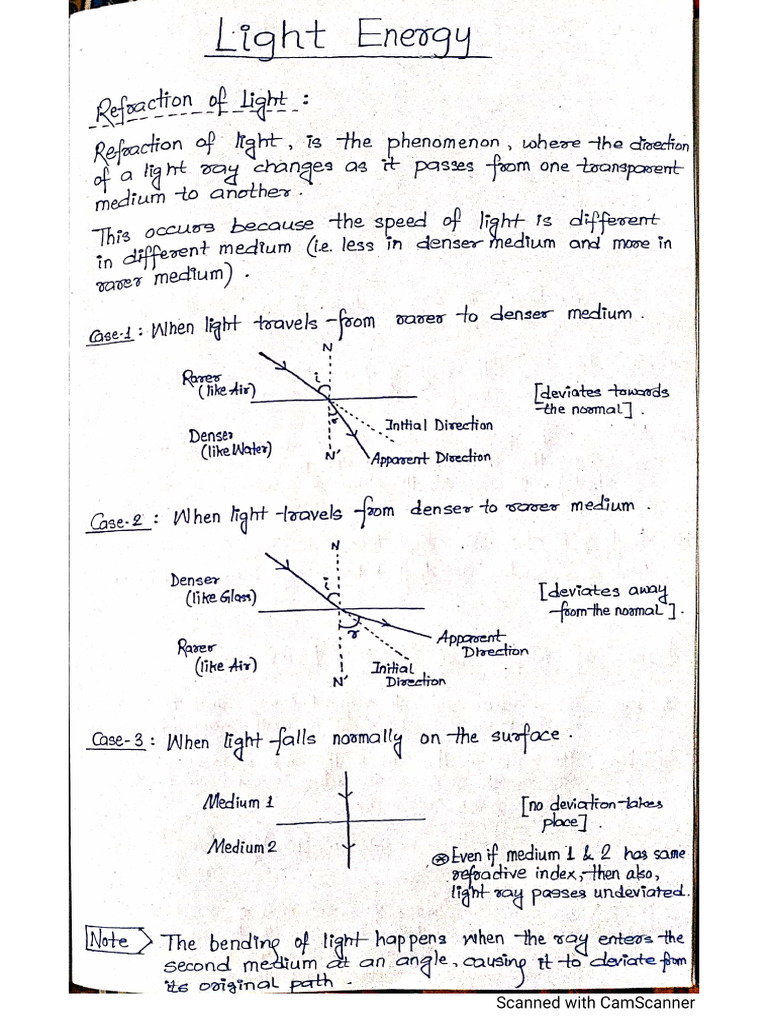 Light Energy
Refraction of Light :
Refraction of light, is the phenomenon, where the direction
of a light ray changes as it passes from one transparent
medium to another.
This occurs because the speed of light is different
in different medium (i.e. less in denser medium and more in
rarer medium).
Case-1 : When light travels from rarer to denser medium.
N
Rarer
(like Air)
i
[deviates towards
the normal].
r
Initial Direction
Denser
(like Water)
N'
Apparent Direction
Case-2 : When light travels from denser to rarer medium.
N
Denser
(like Glass)
i
[deviates away
from the normal].
r
Apparent
Direction
Rarer
(like Air)
Initial
Direction
N'
Case-3 : When light falls normally on the surface.
Medium 1
[no deviation takes
place].
Medium 2
⊛ Even if medium 1 & 2 has same
refractive index, then also,
light ray passes undeviated.
Note The bending of light happens when the ray enters the
second medium at an angle, causing it to deviate from
its original path.
Scanned with CamScanner